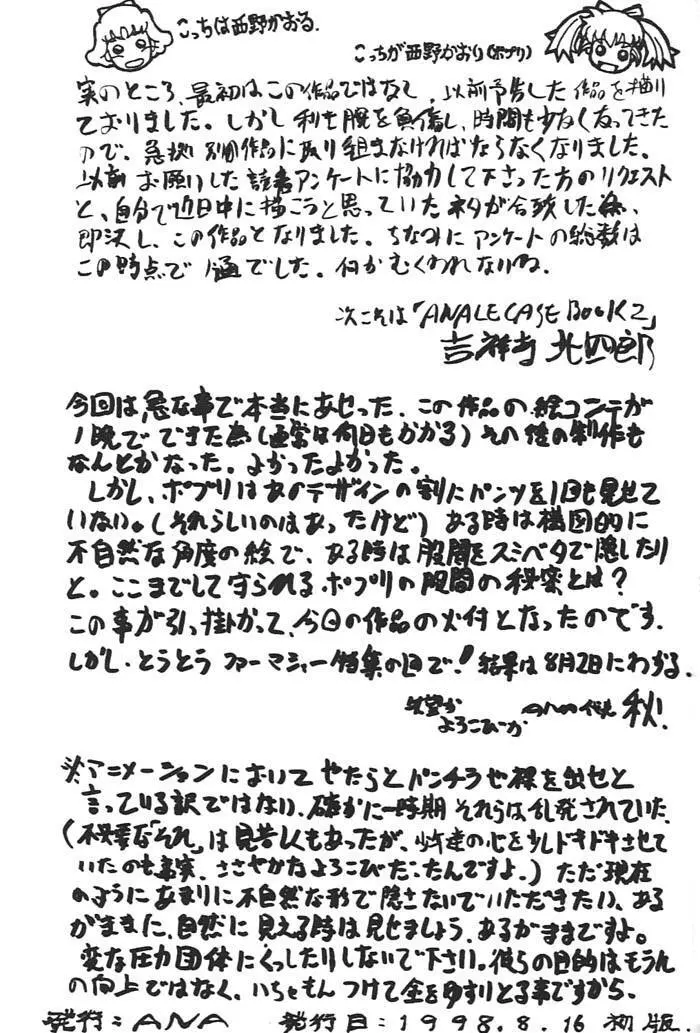 こっちは西野かおる.
こっちが西野かおり(ポプリ)
実のところ、最初はこの作品ではなく、以前予告した作品を描い
ておりました。しかし利き腕を負傷し、時間も少なくなってきた
ので、急拠 別の作品に取り組まなければならなくなりました。
以前お願いした読者アンケートに協力して下さった方のリクエスト
と、自分で近日中に描こうと思っていたネタが合致した為、
即決し、この作品となりました。ちなみにアンケートの総数は
この時点で1通でした。何かむくわれないね.
次こそは「ANALE CASE BOOK2」
吉祥寺 北四郎
今回は急な事で本当にあせった. この作品の絵コンテが
1晩でできた為(通常は何日もかかる)その後の制作も
なんとかなった. よかったよかった。
しかし、ポプリはあのデザインの割にパンツを1回も見せて
いない。(それらしいのはあったけど)ある時は構図的に
不自然な角度の絵で、ある時は股間をスミベタで隠したり
と。ここまでして守られるポプリの股間の秘密とは?
この事が引っ掛かって、今回の作品の火付となったのです.
しかし・とうとうファーマシャー特集の回で!結果は8月2日にわかる.
よろこびーか 秋!
※アニメーションにおいてやたらとパンチラや裸を出せと
言っている訳ではない. 確かに一時期それらは乱発されていた.
(不必要な"それ"は見苦しくもあったが、少年達の心を少しドキドキさせて
いたのも事実. ささやかなよろこびだったんですよ.)ただ現在
のようにあまりに不自然な形で隠さないでいただきたい、ある
がままに、自然に見える時は見せましょう. あるがままですよ。
変な圧力団体にくっしたりしないで下さい。彼らの目的はもうんの
の向上ではなく、いちゃもんつけて金をゆすりとる事ですから.
発行:ANA 発行日:1998.8.16 初版